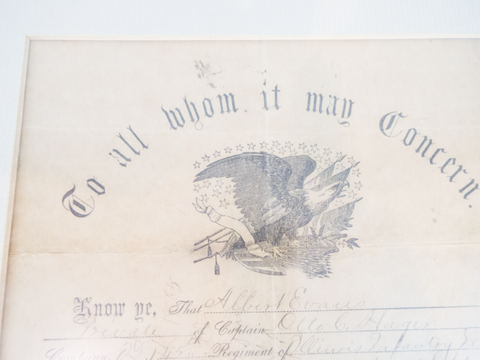 To all whom it may Concern.
Know ye, That Albert Evans
Private of Captain Otto E.
Company Regiment of Illinois Infantry